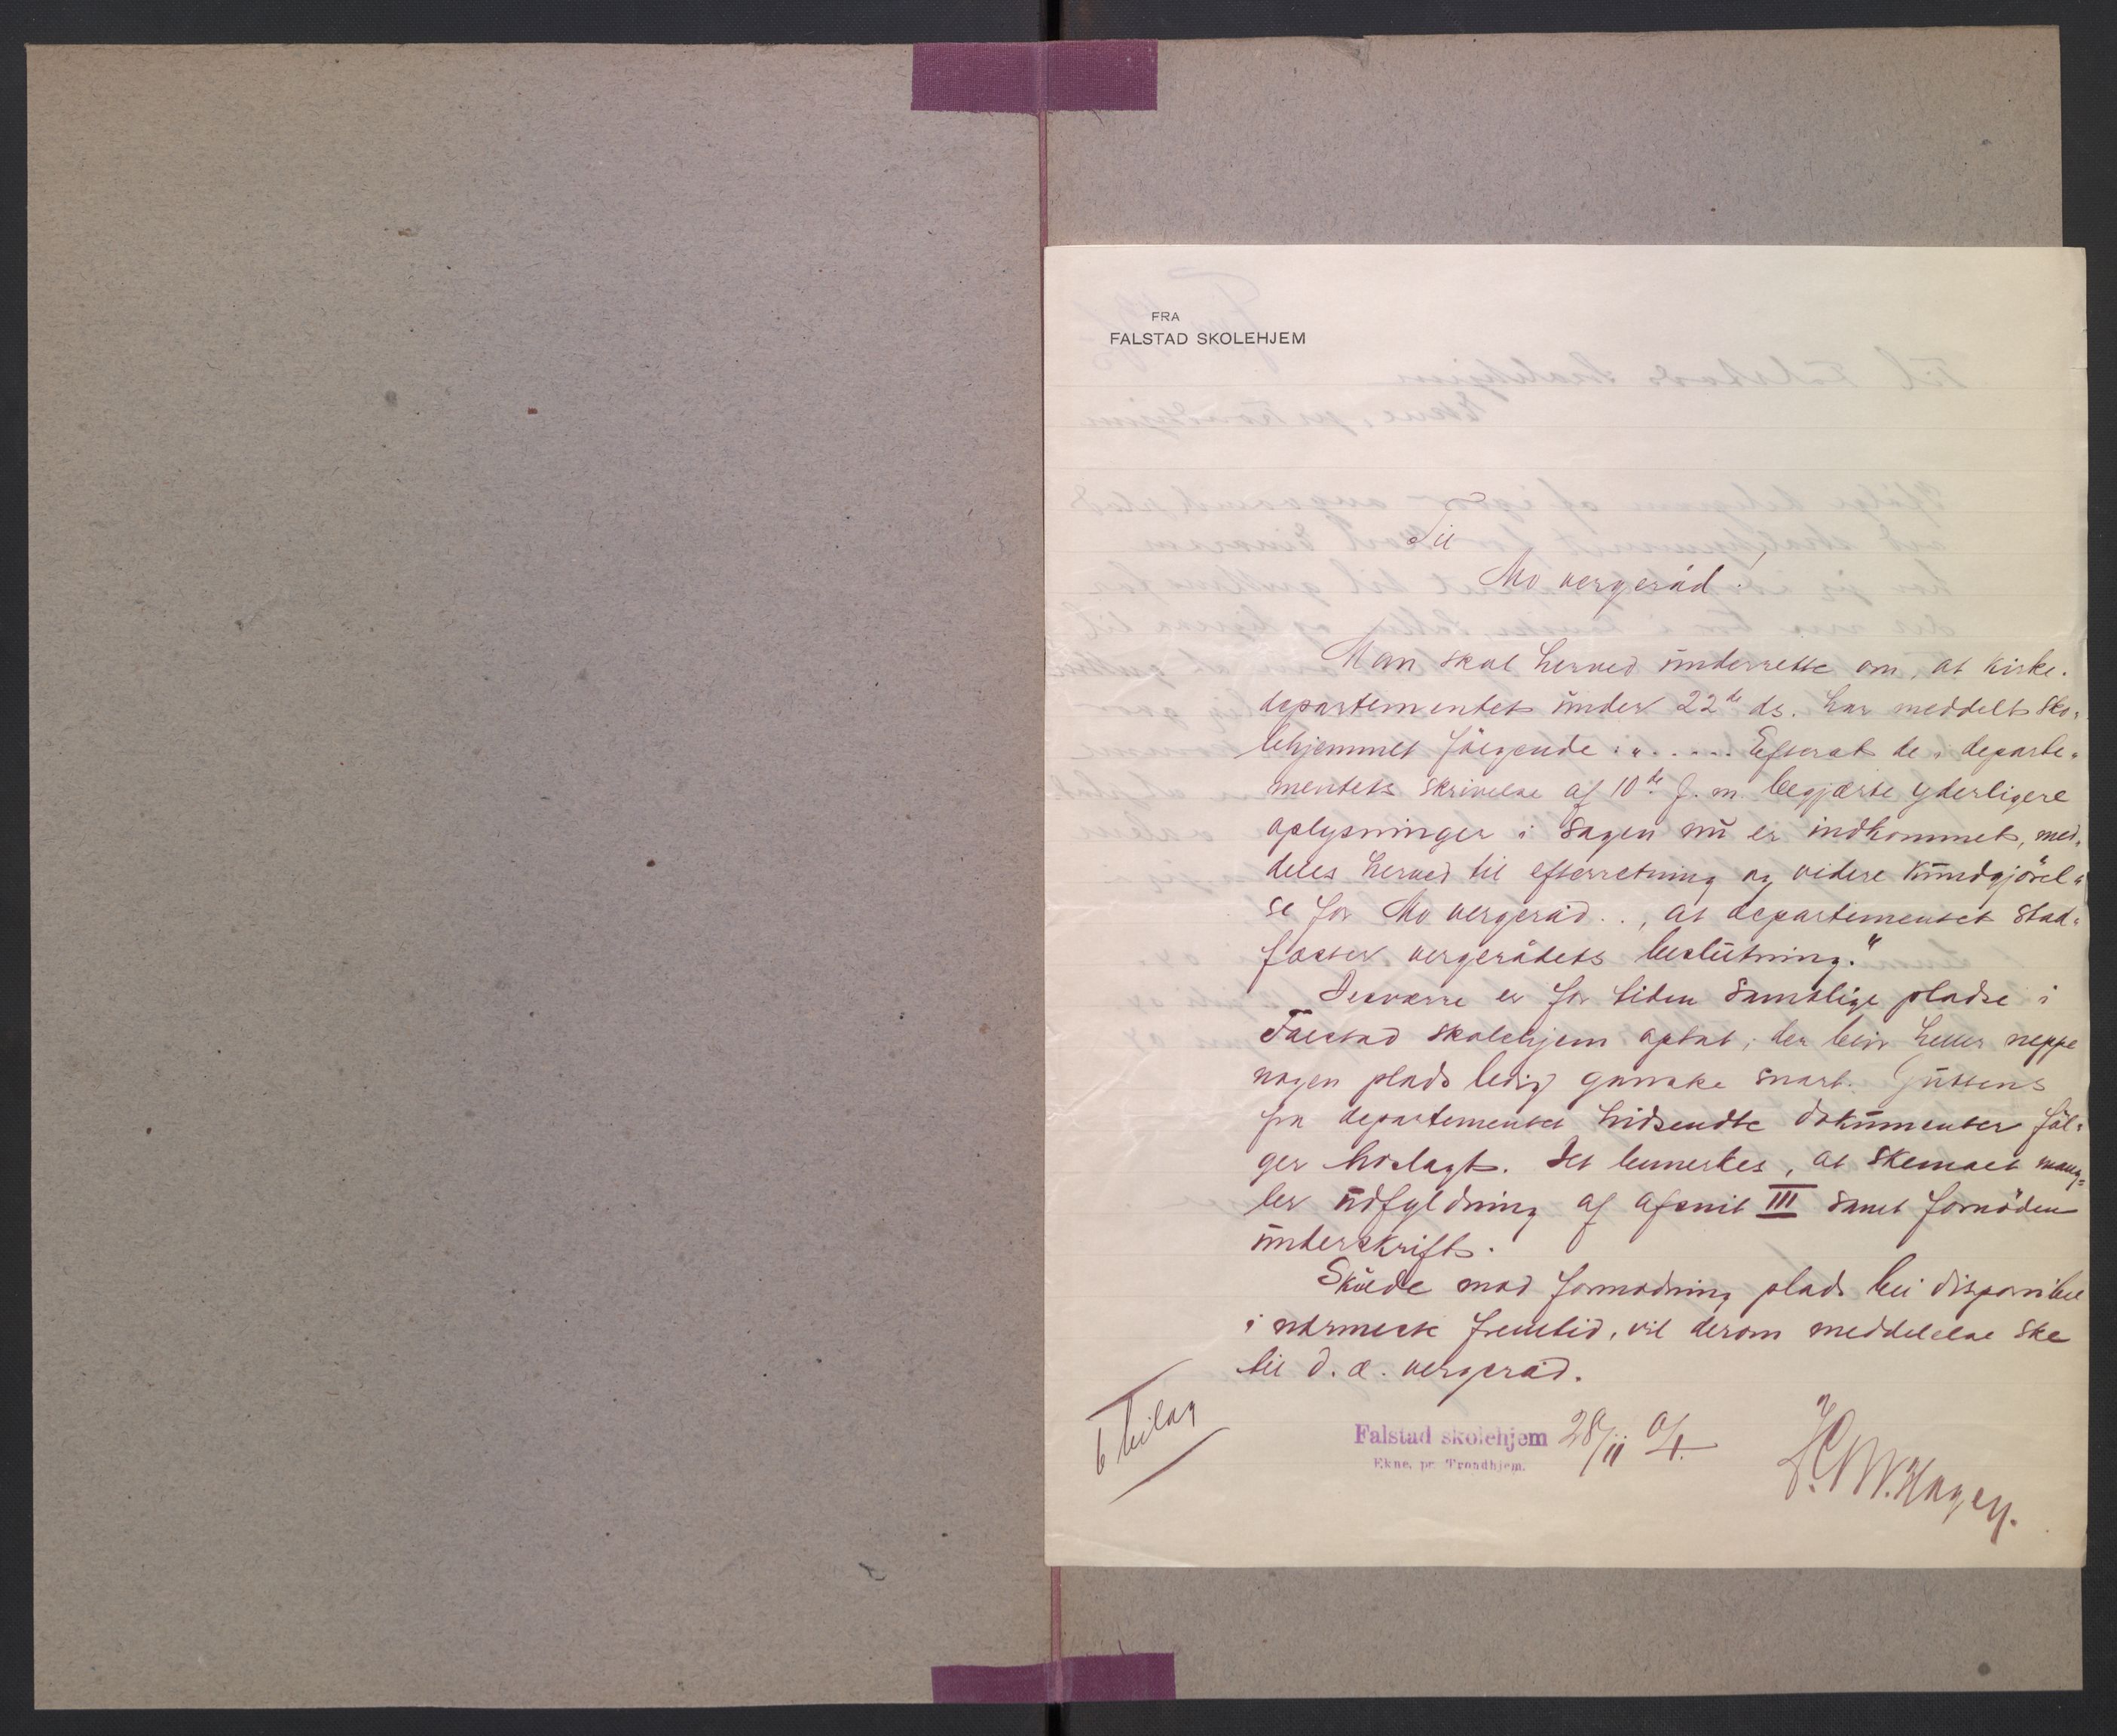 FRA
FALSTAD SKOLEHJEM
Til
Mo vergeråd!
Man skal herved underrette om, at kirke-
departementet under 22de ds. har meddelt sko-
lehjemmet følgende: "..... Efterat de i departe-
mentets skrivelse af 10de f. m. begjærte yderligere
oplysninger i sagen nu er indkommet, med-
deles herved til efterretning og videre kundgjørel-
se for Mo vergeråd .., at departementet stad-
fæster vergerådets beslutning."
Desværre er for tiden samtlige pladse i
Falstad skolehjem optat; der blir heller neppe
nogen plads ledig ganske snart. Guttens
fra departementet hidsendte dokumenter føl-
ger hoslagt. Det bemerkes, at skemaet mang-
ler udfyldning af afsnit III samt fornøden
underskrift.
Skulde mod formodning plads bli disponibel
i nærmeste fremtid, vil derom meddelelse ske
til d. æ. vergeråd.
6 bilag
Falstad skolehjem 28/11 04.
Ekne. pr. Trondhjem.
H. M. Hagen.
Til Falstad skolehjem
Ekne, pr Trondhjem